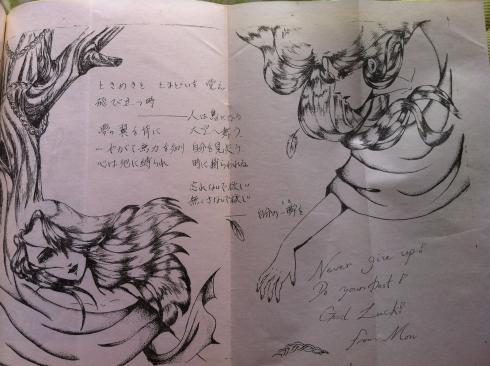 ときめきと とまどいを 覚え
飛び立つ時
人は鳥になり
夢の翼を背に
大空へ舞う
やがて無力を知り
自分を見失う
心は地に縛られ
時に縛られ
忘れないで欲しい
無くさないで欲しい
自分の
Never give up!
Do your best!
Good Luck!
from Mon